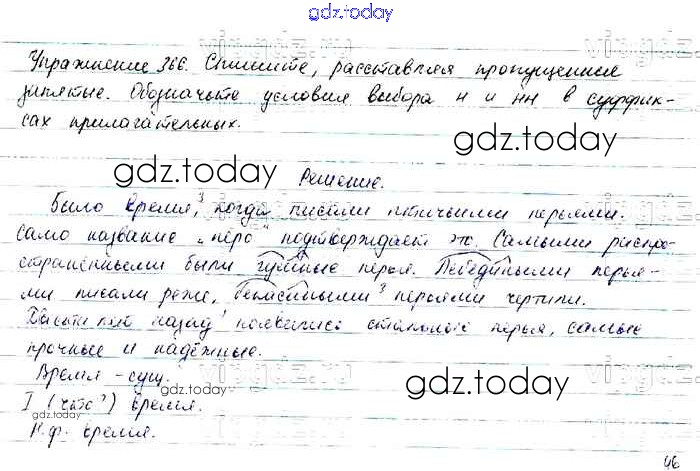 gdz.today
Упражнение 366. Спишите, расставляя пропущенные
запятые. Обозначьте условия выбора н и нн в суффик-
сах прилагательных.
gdz.today
gdz.today
Решение.
Было время,³ когда писали птичьими перьями.
само название „перо" подтверждает это. Самыми распро-
страненными были гусиные перья. Лебедиными перья-
ми писали реже, ³ перьями чертили.
назад появились стальные перья, самые
прочные и надёжные.
Время - сущ.
gdz.today
I (что?) время.
gdz.today
Н.ф. время.
46